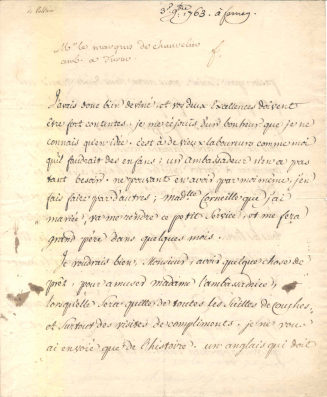 de Voltaire
3e 9bre 1763 à ferney
Mr. le marquis de chauvelin
amb. à Turin
J'avais donc bien deviné, et vos deux Excellences doivent
être fort contentes. je me réjouis d'un bonheur que je ne
connais qu'en idée. c'est à de vieux laboureurs comme moi
qu'il faudrait des enfans; un ambassadeur n'en a pas
tant besoin. ne pouvant en avoir par moi même, j'en
fais faire par d'autres; Corneille que j'ai
mariée, va me rendre ce petit service, et me fera
grand père dans quelques mois.
Je voudrais bien, Monsieur, avoir quelque chose de
prêt, pour amuser madame l'ambassadrice,
lorsqu'elle sera quitte de toutes les suittes de couches,
et surtout des visites de compliments. je ne vous
ai envoié que de l'histoire. un anglais qui doit